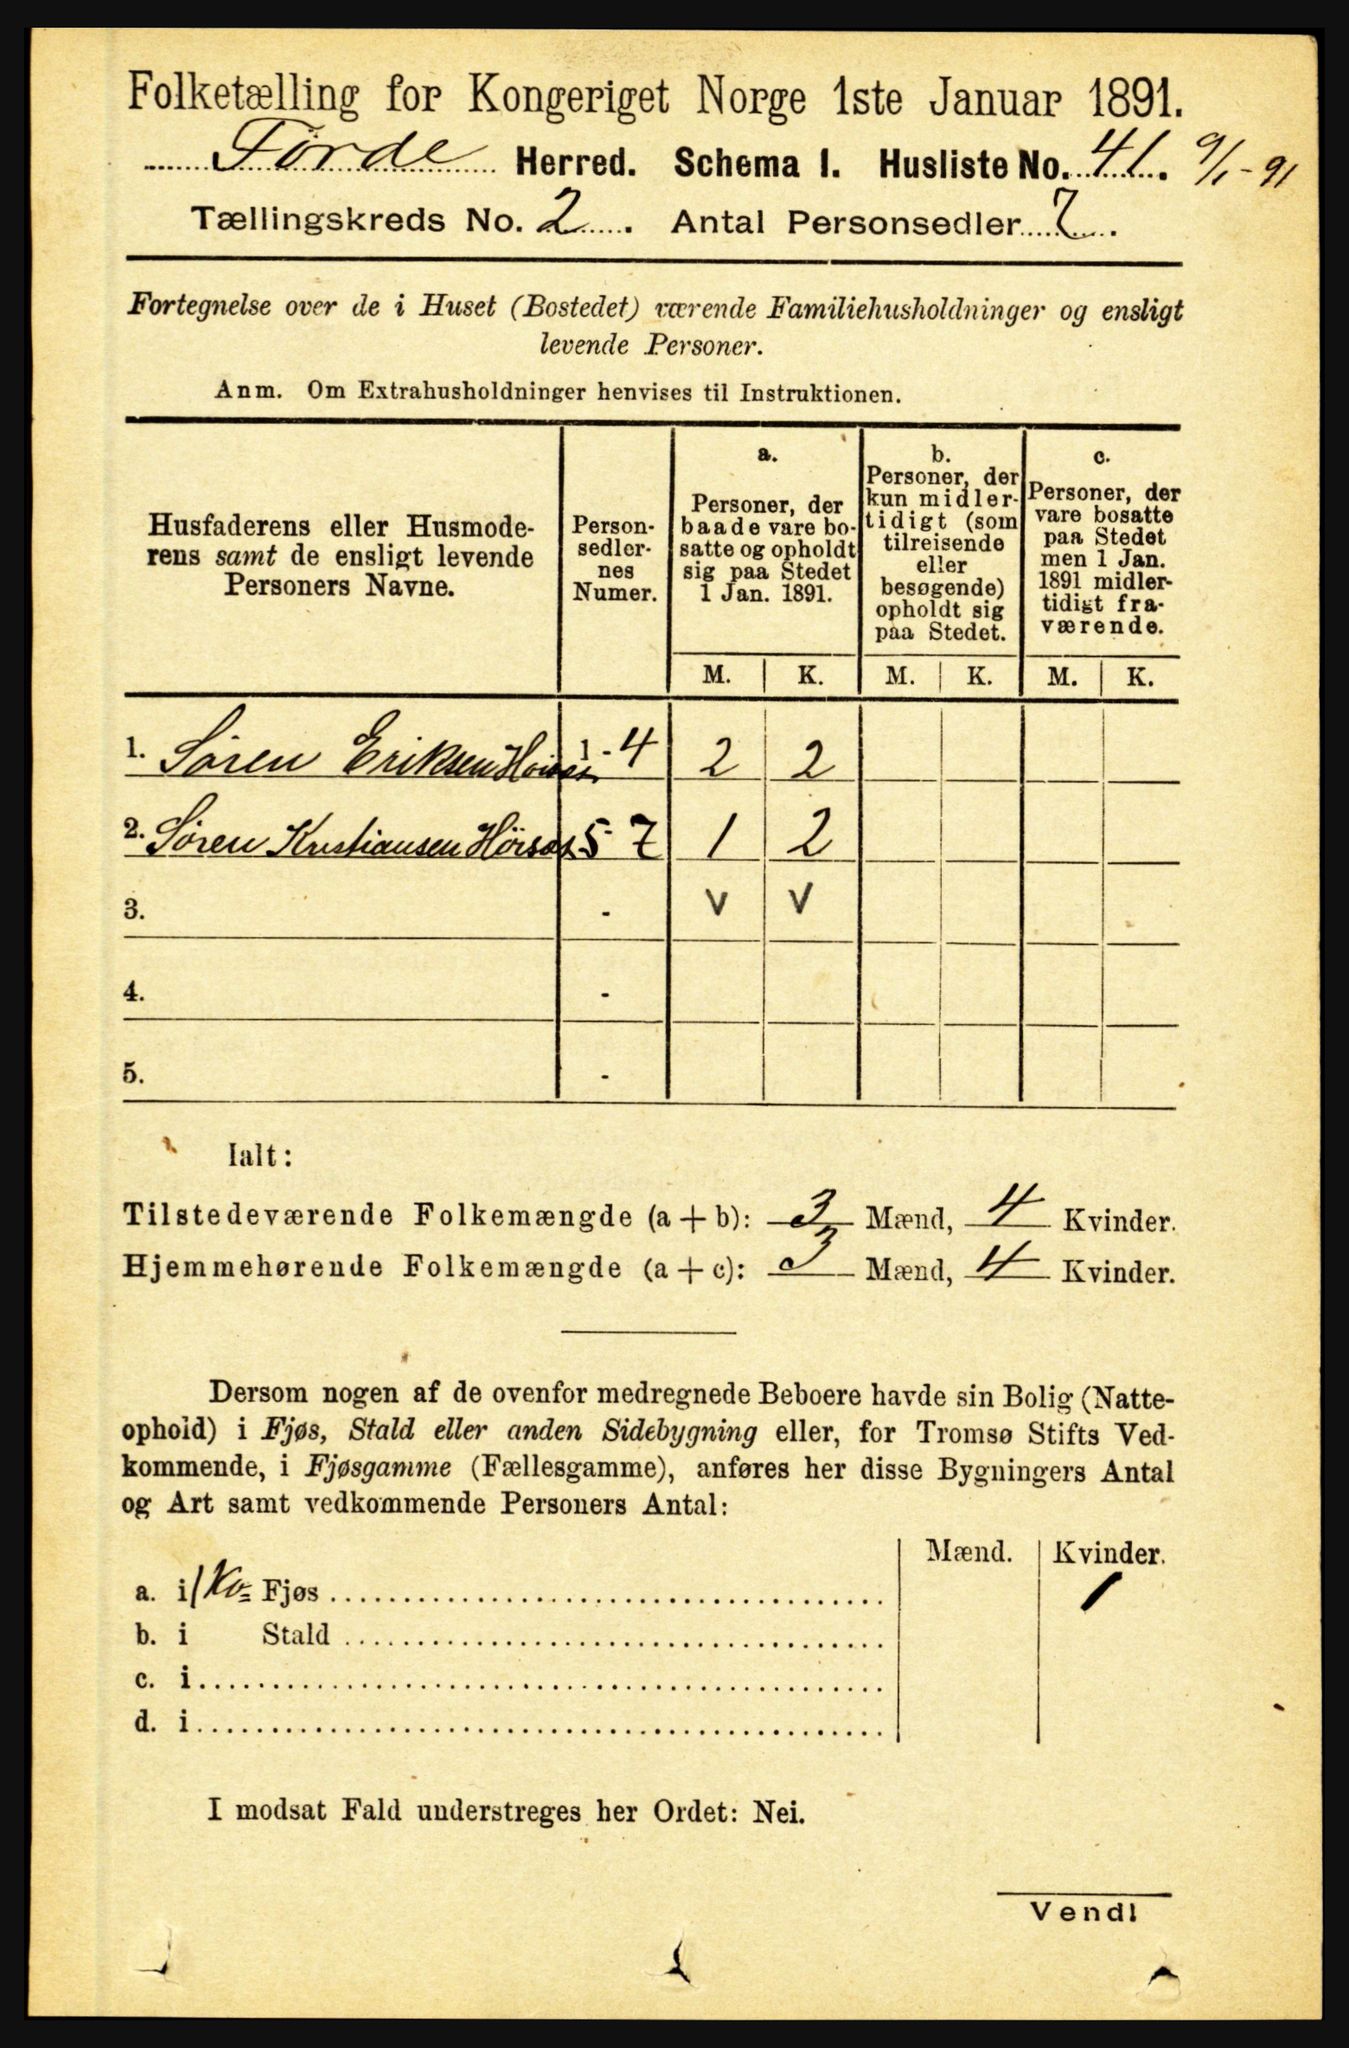 Folketælling for Kongeriget Norge 1ste Januar 1891.
Førde Herred. Schema I. Husliste No. 41. 9/1-91
Tællingskreds No. 2. Antal Personsedler 7.
Fortegnelse over de i Huset (Bostedet) værende Familiehusholdninger og ensligt
levende Personer.
Anm. Om Extrahusholdninger henvises til Instruktionen.
Husfaderens eller Husmode-
rens samt de ensligt levende
Personers Navne.
Person-
sedler-
nes
Numer.
a.
Personer, der
baade vare bo-
satte og opholdt
sig paa Stedet
1 Jan. 1891.
b.
Personer, der
kun midler-
tidigt (som
tilreisende
eller
besøgende)
opholdt sig
paa Stedet.
c.
Personer, der
vare bosatte
paa Stedet
men 1 Jan.
1891 midler-
tidigt fra-
værende.
M. K. M. K. M. K.
1. Søren Eriksen 1-4 2 2
2. Søren Kristiansen 5-7 1 2
3. - v v
4. -
5. -
Ialt:
Tilstedeværende Folkemængde (a + b): 3 Mænd, 4 Kvinder.
Hjemmehørende Folkemængde (a + c): 3 Mænd, 4 Kvinder.
Dersom nogen af de ovenfor medregnede Beboere havde sin Bolig (Natte-
ophold) i Fjøs, Stald eller anden Sidebygning eller, for Tromsø Stifts Ved-
kommende, i Fjøsgamme (Fællesgamme), anføres her disse Bygningers Antal
og Art samt vedkommende Personers Antal:
Mænd. Kvinder.
a. i 1 Ko= Fjøs 1
b. i Stald
c. i
d. i
I modsat Fald understreges her Ordet: Nei.
Vend!